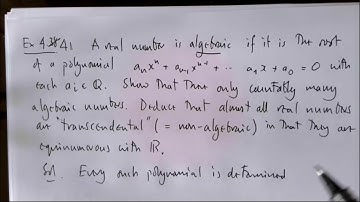 Ex 4.41 A real number is algebraic if it is the root
of a polynomial aₙxⁿ + aₙ₋₁xⁿ⁻¹ + ... a₁x + a₀ = 0 with
each aᵢ ∈ ℚ. Show that there only countably many
algebraic numbers. Deduce that almost all real numbers
are "transcendental" (= non-algebraic) in that they are
equinumerous with ℝ.
Sol. Every such polynomial is determined